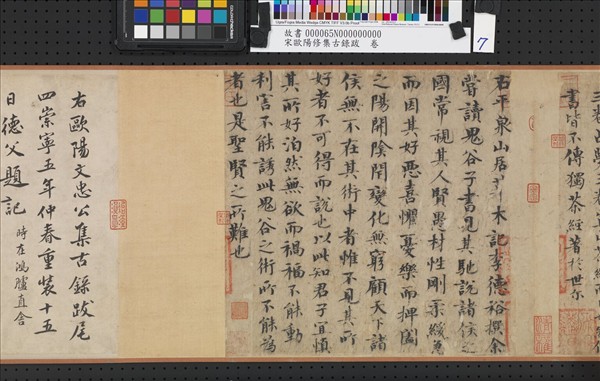 故書 000065N000000000
宋歐陽修集古錄跋 卷
7
書皆不傳獨茶經著於世尔
右平泉山居草木記李德裕撰余
嘗讀鬼谷子書見其馳說諸侯之
國常視其人賢愚材性剛柔緩急
而因其好惡喜懼憂樂而捭闔
之陽開陰閉變化無窮顧天下諸
侯無不在其術中者惟不見其所
好者不可得而說也以此知君子宜慎
其所好泊然無欲而禍福不能動
利害不能誘此鬼谷之術所不能為
者也是聖賢之所難也
右歐陽文忠公集古錄跋尾
四崇寧五年仲春重裝十五
日德父題記
時在鴻臚直舍